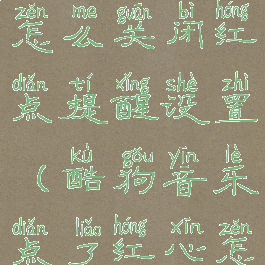 zěn me guān bì hóng
怎么关闭红
diǎn tí xǐng shè zhì
点提醒设置
kù gǒu yīn lè
(酷狗音乐
diǎn liǎo hóng xīn zěn
点了红心怎